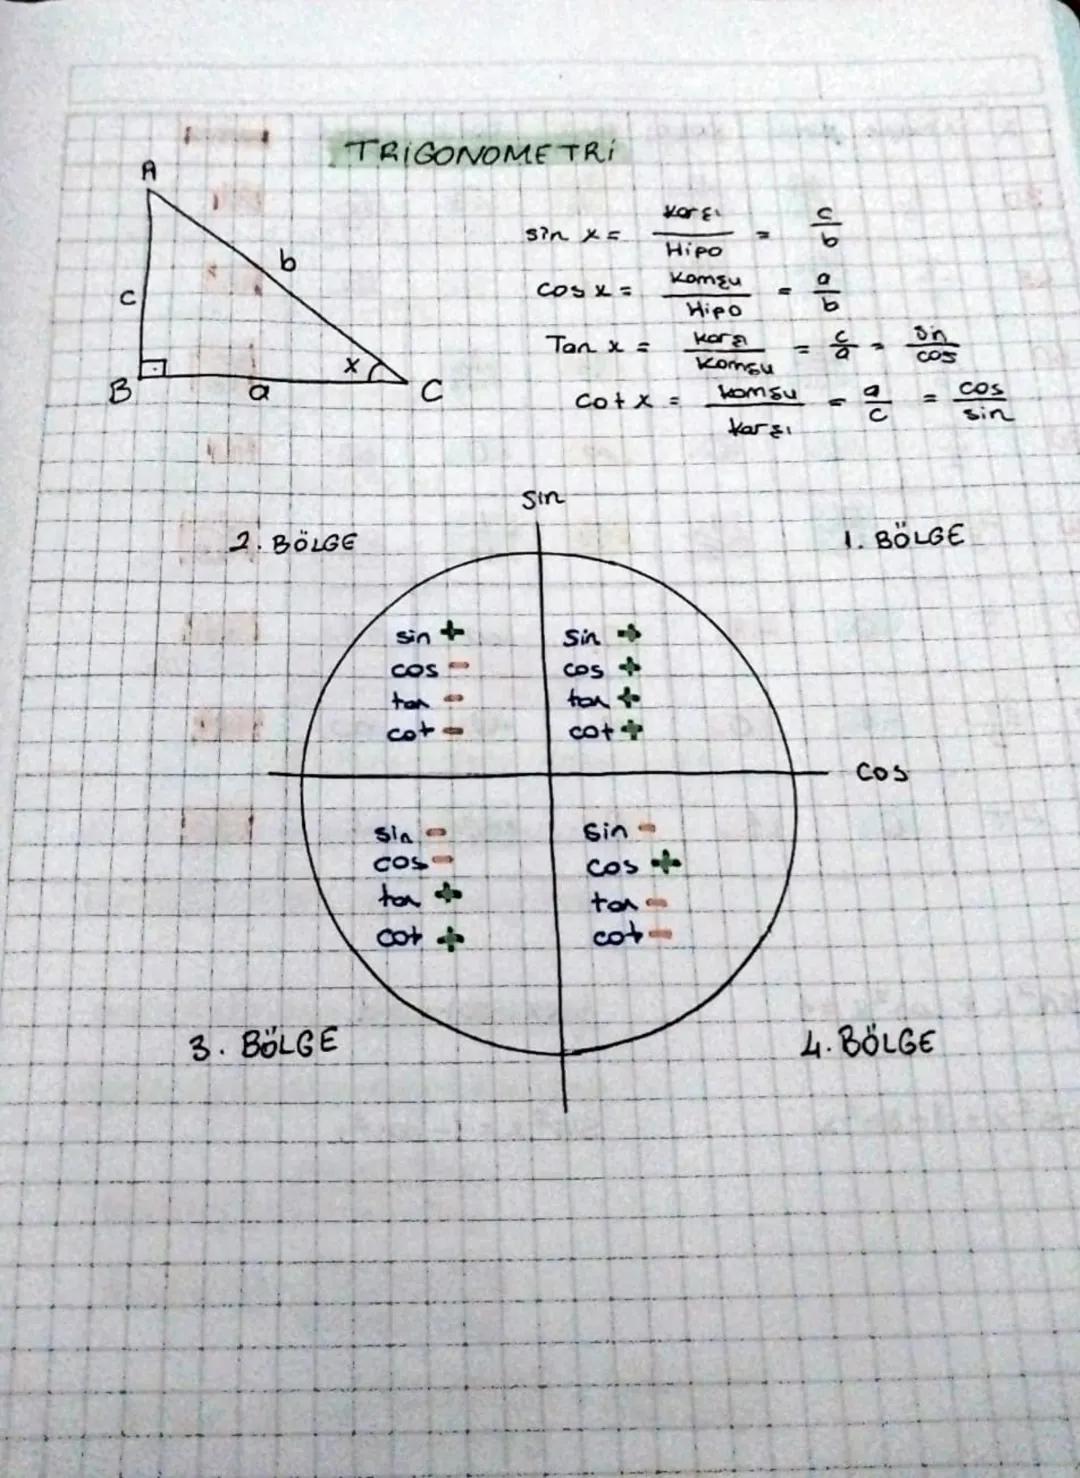 TRİGONOMETRİ
A
b
c
x
B
a
C
sin x = Karşı / Hipo = c / b
cos x = Komşu / Hipo = a / b
Tan x = Karşı / Komşu = c / a = sin / cos
cot x = Komşu / Karşı = a / c = cos / sin
Sin
2. BÖLGE
1. BÖLGE
sin +
cos -
tan -
cot -
Sin +
cos +
tan +
cot +
cos
sin -
cos -
tan +
cot +
sin -
cos +
tan -
cot -
3. BÖLGE
4. BÖLGE